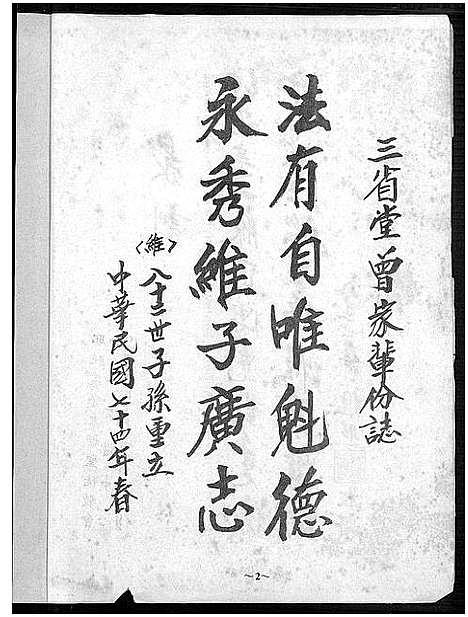 三省堂曾家輩份誌
法有自唯魁德
永秀維子廣志
〈維〉八十二世子孫重立
中華民國七十四年春
~2~